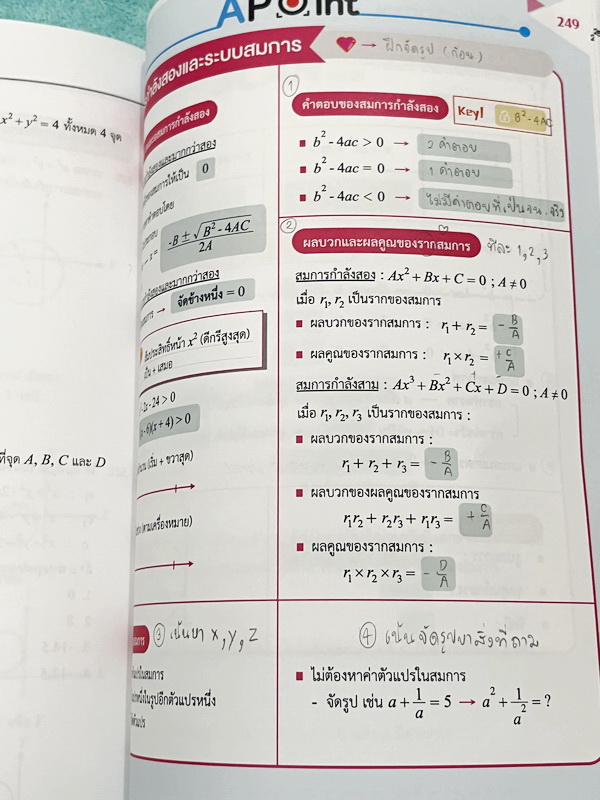 APoint
249
กำลังสองและระบบสมการ
→ ฝึกจัดรูป (ก่อน)
x² + y² = 4 ทั้งหมด 4 จุด
ที่จุด A, B, C และ D
สมการกำลังสอง
และมากกว่าสอง
สมการให้เป็น 0
คำตอบโดย
x = (-B ± √(B² - 4AC)) / 2A
กำลังสองและมากกว่าสอง
→ จัดข้างหนึ่ง = 0
สัมประสิทธิ์หน้า x² (ดีกรีสูงสุด)
เป็น + เสมอ
-2x - 24 > 0
(x - 6)(x + 4) > 0
(เริ่ม + ขวาสุด)
(ตามเครื่องหมาย)
①
คำตอบของสมการกำลังสอง
Key! B² - 4AC
■ b² - 4ac > 0 → 2 คำตอบ
■ b² - 4ac = 0 → 1 คำตอบ
■ b² - 4ac < 0 → ไม่มีคำตอบที่เป็นจน. จริง
②
ผลบวกและผลคูณของรากสมการ ทีละ 1, 2, 3
สมการกำลังสอง : Ax² + Bx + C = 0 ; A ≠ 0
เมื่อ r₁, r₂ เป็นรากของสมการ
■ ผลบวกของรากสมการ : r₁ + r₂ = -B/A
■ ผลคูณของรากสมการ : r₁ × r₂ = +C/A
สมการกำลังสาม : Ax³ + Bx² + Cx + D = 0 ; A ≠ 0
เมื่อ r₁, r₂, r₃ เป็นรากของสมการ :
■ ผลบวกของรากสมการ :
r₁ + r₂ + r₃ = -B/A
■ ผลบวกของผลคูณของรากสมการ
r₁r₂ + r₂r₃ + r₁r₃ = +C/A
■ ผลคูณของรากสมการ :
r₁ × r₂ × r₃ = -D/A
③ เน้นหา x, y, z
ในสมการ
ในรูปอีกตัวแปรหนึ่ง
④ เน้นจัดรูปหาสิ่งที่ถาม
■ ไม่ต้องหาค่าตัวแปรในสมการ
- จัดรูป เช่น a + 1/a = 5 → a² + 1/a² = ?